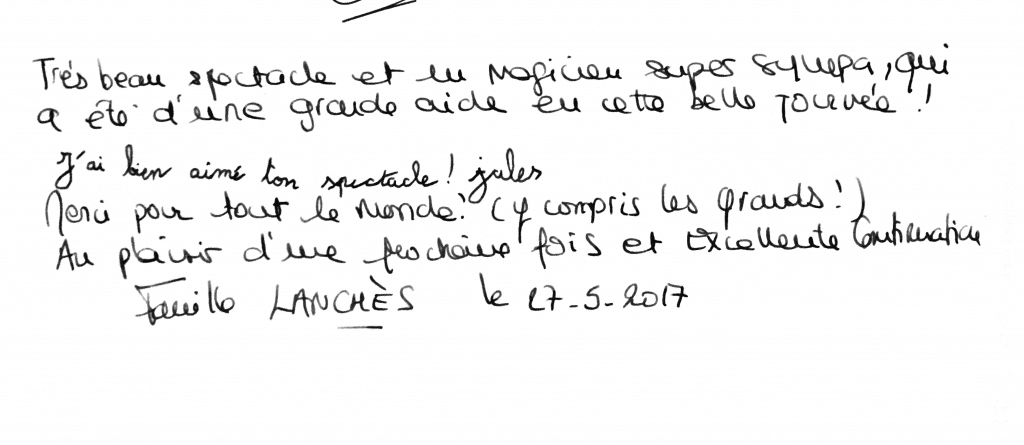 Très beau spectacle et un magicien super sympa, qui
a été d'une grande aide en cette belle journée !
J'ai bien aimé ton spectacle ! jules
Merci pour tout le monde ! (y compris les grands !)
Au plaisir d'une prochaine fois et Excellente Continuation
Famille LANCHÈS le 27-5-2017